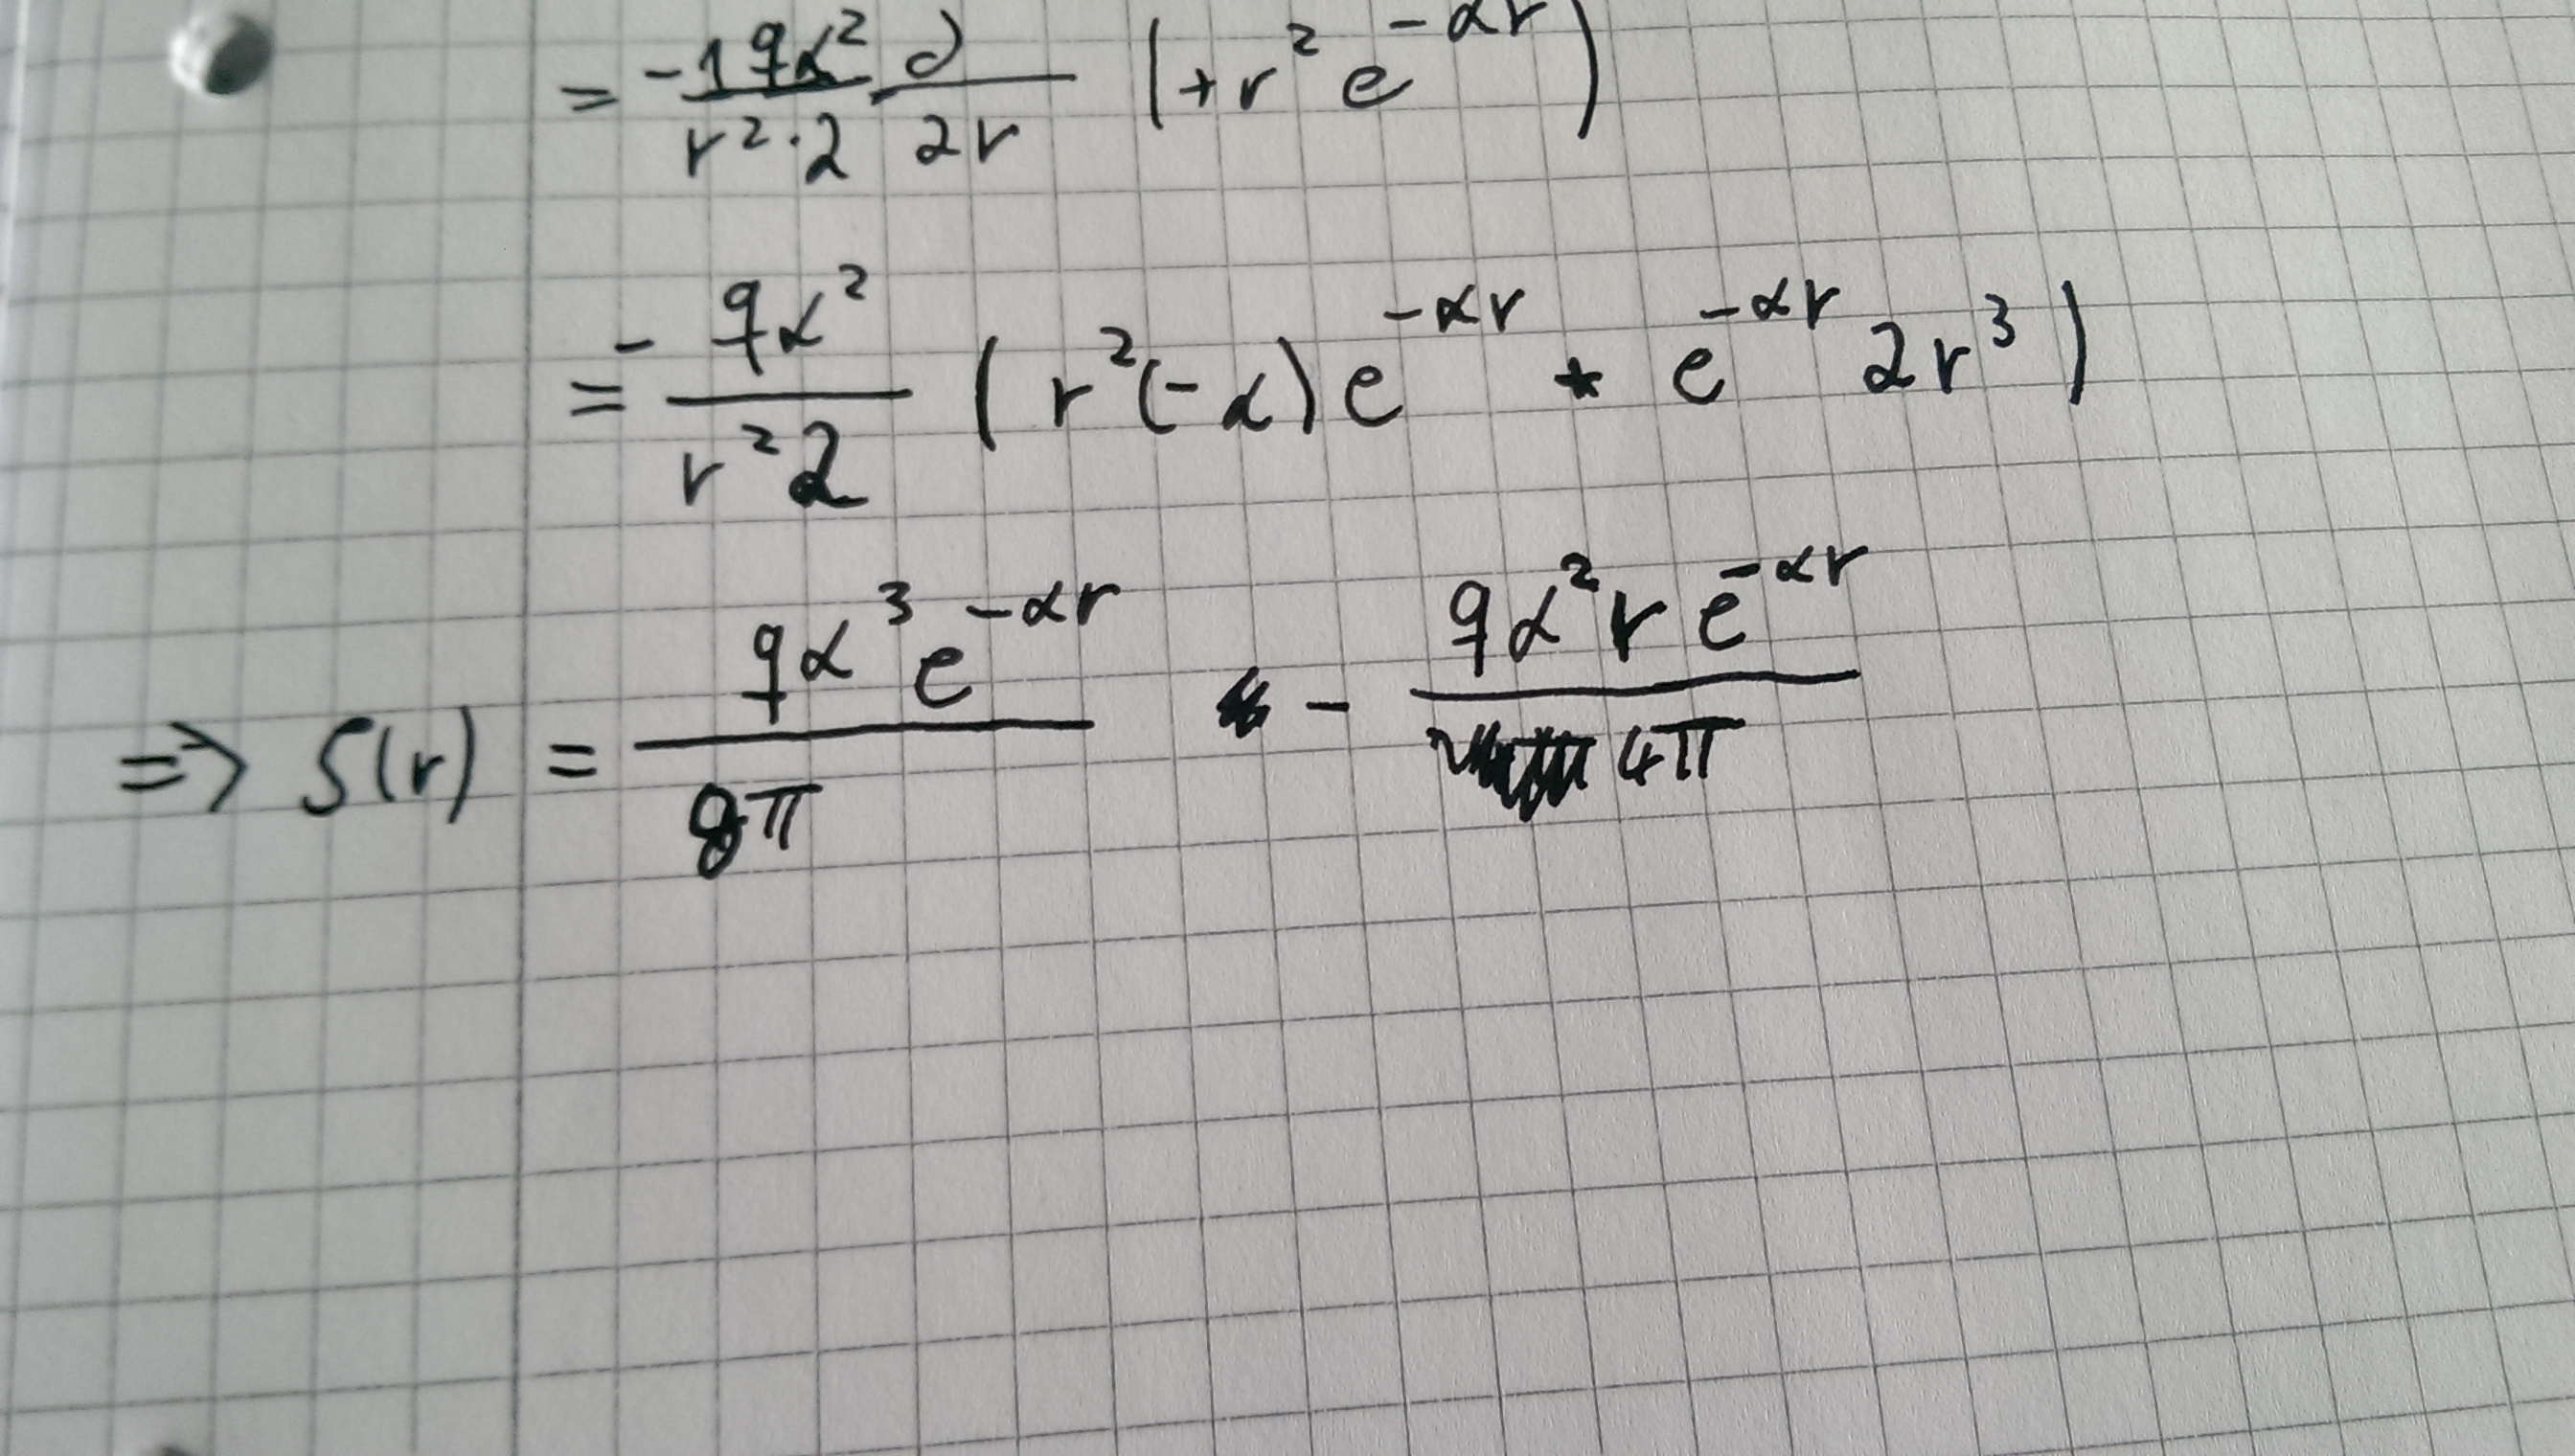 = -1qα²/(r²·2) ∂/2r (+r² e^(-αr))
= -qα²/(r²2) (r²(-α)e^(-αr) * e^(-αr) 2r³)
=> ρ(r) = qα³e^(-αr)/8π - qα²r e^(-αr)/4π